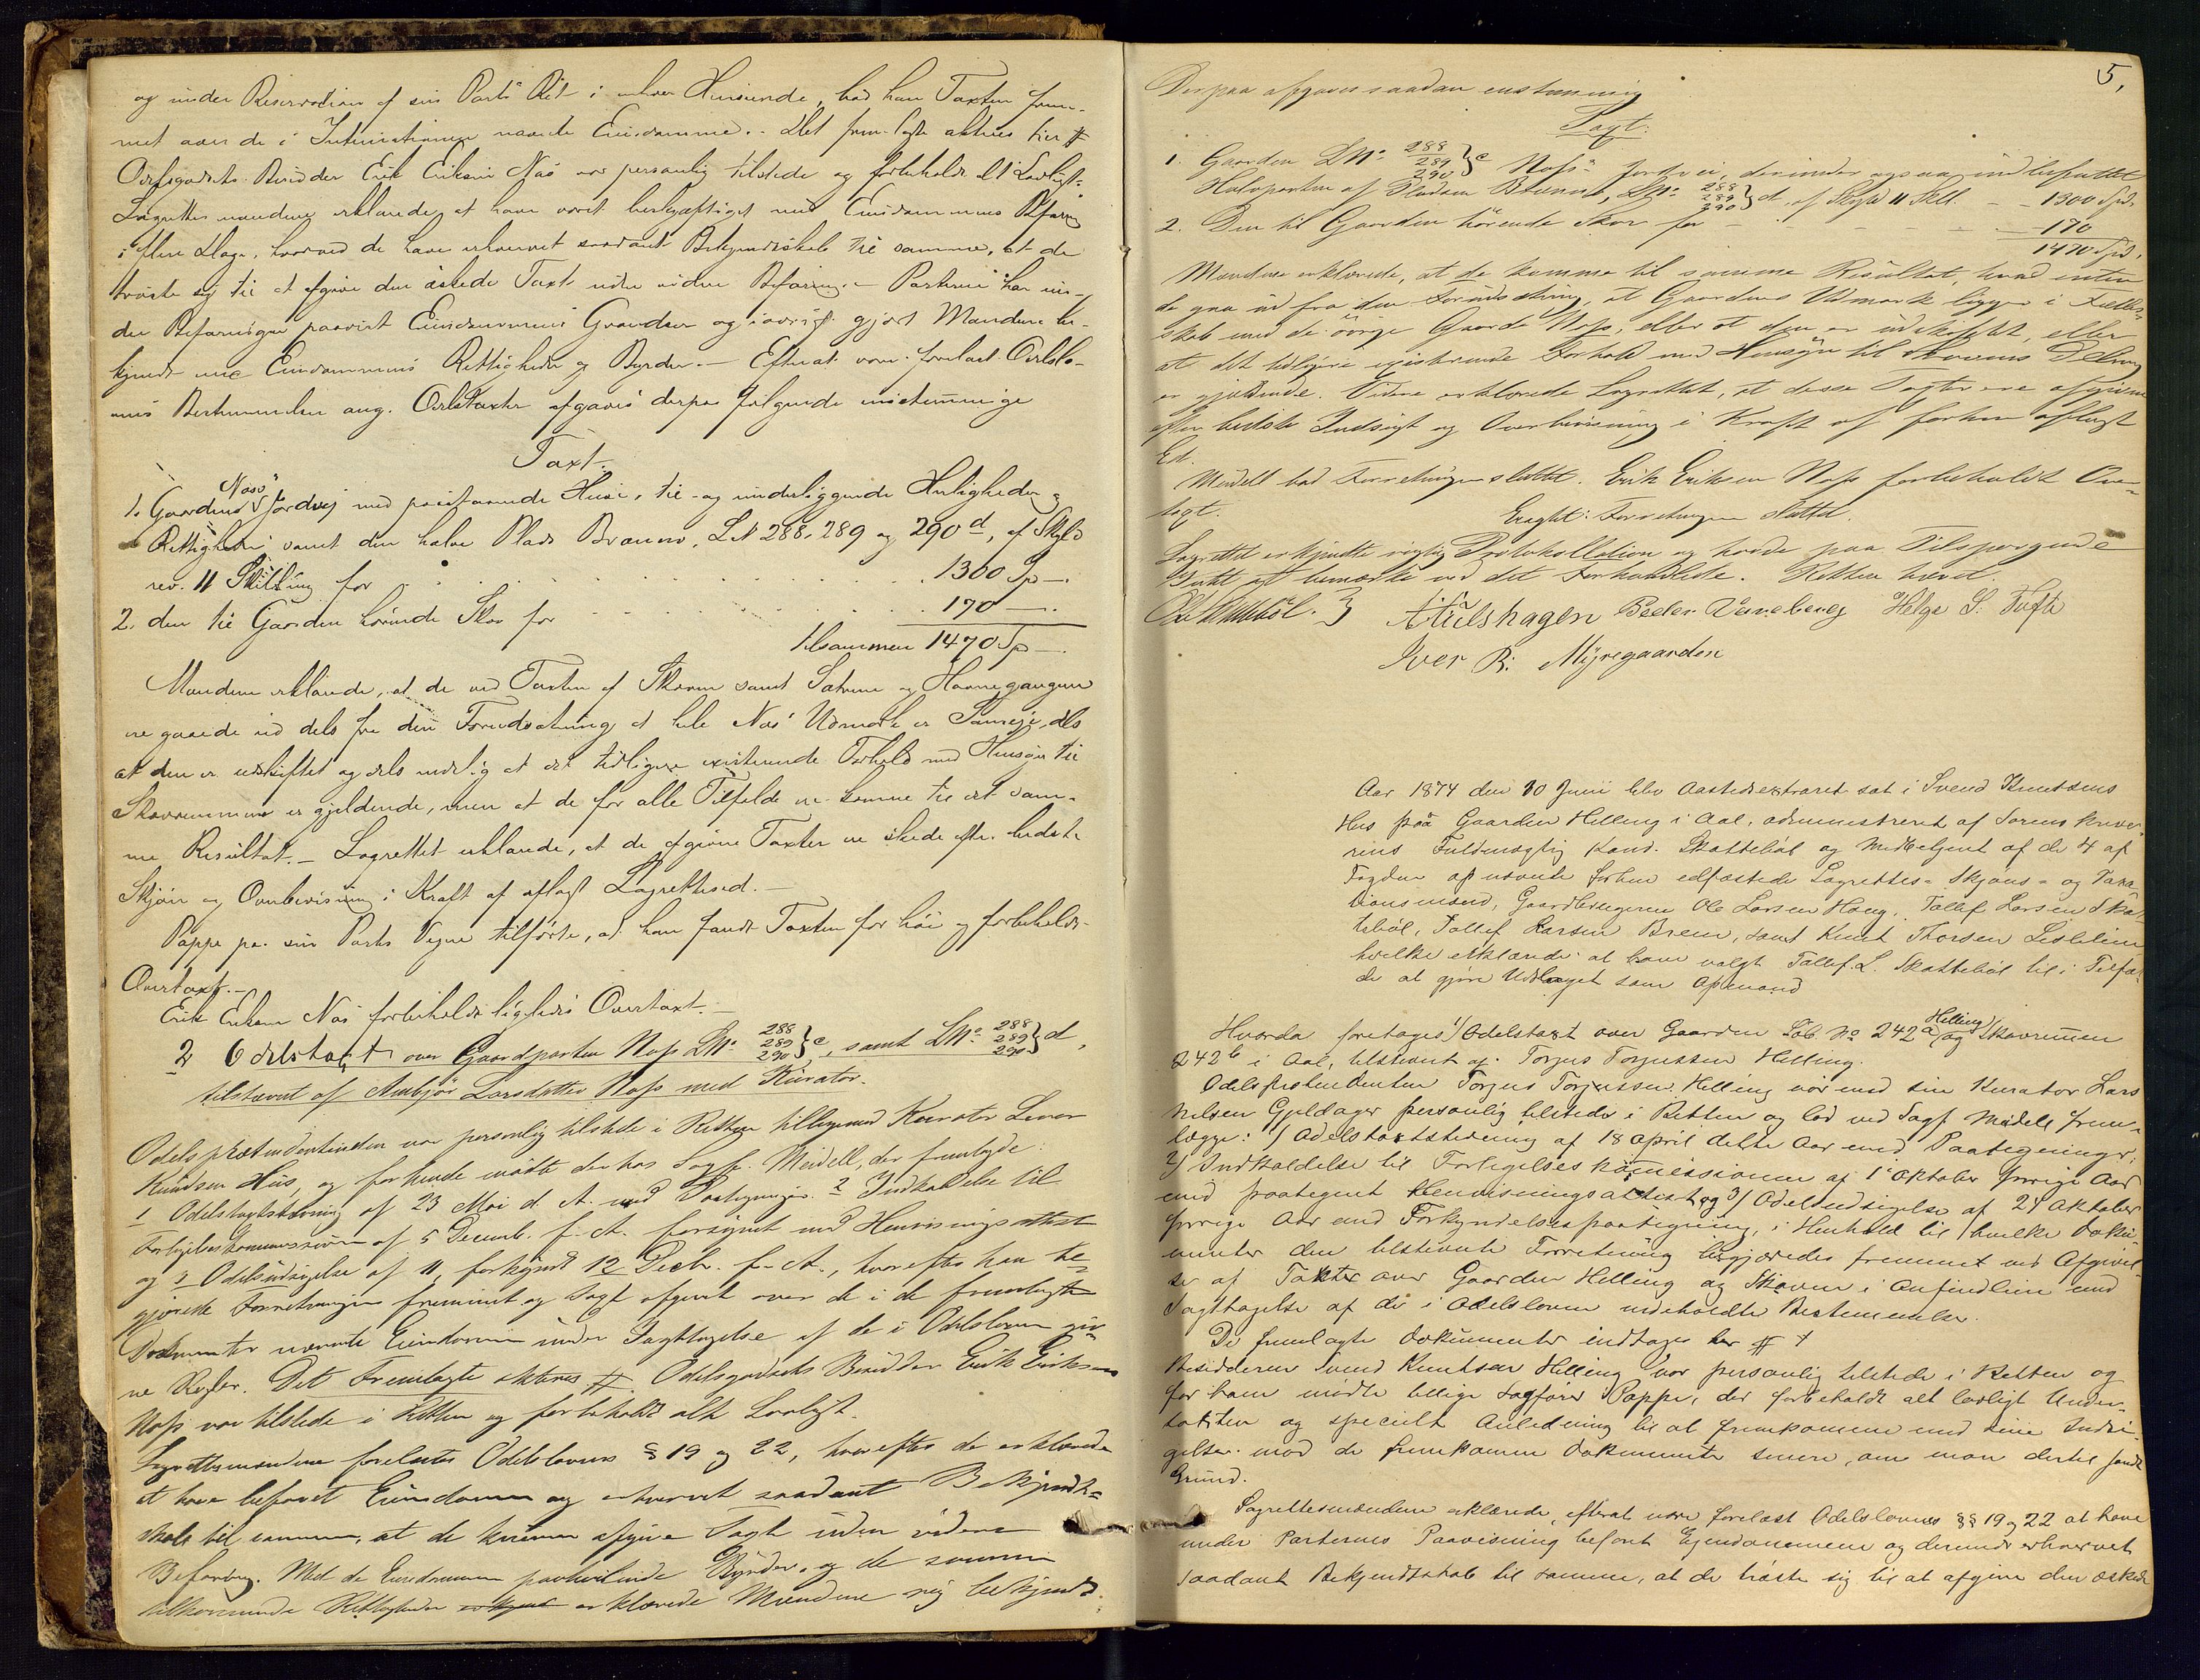 og under Reservation af sin Parts Ret i enhver Henseende, bad han Taxten frem-
met over de i Intimationen nævnte Eiendomme. - Det frem lagte akteres her #
Odelsgodsets Besidder Erik Eriksen Næs var personlig tilstede og forbeholdt alt Lovligt.
Lagrettesmændene erklærede, at have været beskjæftiget med Eiendommens Befaring
i flere Dage, hvorved de have erhvervet saadant Bekjendtskab til samme, at de
trøste sig til at afgive den æskede Taxt uden videre Befaring. - Parterne har un-
der Befaringen paavist Eiendommens Grændser og iøvrigt gjort Mændene be-
kjendt med Eiendommens Rettigheder og Byrder. - Efterat være forelæst Odelslo-
vens Bestemmelser ang. Odelstaxter afgaves derpaa følgende enstemmige
Taxt.
1. Gaardens Næss Jordvej med paastaaende Huse, til- og underliggende Herligheder og
Rettigheder samt den halve Plads Braaten, L N 288, 289 og 290 d, af Skyld
rev. 11 Skilling for . . . . . 1300 Sp —.
2. den til Gaarden hørende Skov for . . . . . 170 —.
tilsammen 1470 Sp —.
Mændene erklærede, at de ved Taxten af Skoven samt Sætrene og Havnegangene
ere gaaede ud dels fra den Forudsætning at hele Næs' Udmark er Sameje, dels
at den er udskiftet og dels endelig at det tidligere existerende Forhold med Hensyn til
Skovrummene er gjeldende, men at de for alle Tilfælde ere komne til det sam-
me Resultat. - Lagrettet erklærede, at de afgivne Taxter ere skede efter bedste
Skjøn og Overbevisning i Kraft af aflagt Lagretteed. -
Pappe paa sin Parts Vegne tilførte, at han fandt Taxten for høi og forbeholdt
Overtaxt. -
Erik Eriksen Næs forbeholdt ligeledes Overtaxt. -
2 Odelstaxt over Gaardparten Næss LNo 288 289 290 } c, samt LNo 288 289 290 } d,
tilstævnt af Ambjør Larsdatter Næss med Kurator.
Odelsprætendentinden var personlig tilstede i Retten tilligemed Kurator Lever
Knudsen Hus, og for hende mødte derhos Sagf. Meidell, der fremlagde:
1 Odelstaxtstævning af 23 Mai d. A. med Paategninger. 2 Indkaldelse til
Forligelseskommissionen af 5 Decemb. f. A. forsynet med Henvisningsattest
og 3 Odelsudsigelse af 11, forkyndt 12 Decb. f. A., hvorefter han be-
gjærede Forretningen fremmet og Taxt afgivet over de i de fremlagte
Dokumenter nævnte Eiendomme under Iagttagelse af de i Odelsloven giv-
ne Regler. Det Fremlagte akteres #. Odelsgodsets Besidder Erik Eriksen
Næss var tilstede i Retten og forbeholdt alt Lovligt.
Lagrettesmændene forelæstes Odelslovens § 19 og 22, hvorefter de erklærede
at have befaret Eiendommen og erhvervet saadant Bekjendt-
skab til samme, at de kunne afgive Taxt uden videre
Befaring. Med de Eiendommen paahvilende Byrder og de samme
tilkommende Rettigheder erklærede Mændene sig bekjendt.
5.
Derpaa afgaves saadan enstemmig
Taxt:
1. Gaarden LNo 288 289 290 } c Næss' Jordvei, derunder ogsaa indbefattet
Halvparten af Pladsen Braaten, LNo 288 289 290 } d, af Skyld 11 Skill. - - 1300 Spd.
2. Den til Gaarden hørende Skov for - - - - - 170
1470 Spd.
Mændene erklærede, at de komme til samme Resultat, hvad enten
de gaa ud fra den Forudsætning, at Gaardens Udmark ligger i Fælles-
skab med de øvrige Gaarde Næss, eller at den er udskiftet, eller
at det tidligere existerende Forhold med Hensyn til Skovens Deling
er gjældende. Videre erklærede Lagrettet, at disse Taxter ere afgivne
efter bedste Indsigt og Overbevisning i Kraft af forhen aflagt
Ed.
Meidell bad Forretningen sluttet. Erik Eriksen Næss forbeholdt Over-
taxt.
Eragtet: Forretningen sluttet.
Lagrettet erkjendte rigtig Protokollation og havde paa Tilspørgende
Intet at bemærke ved det Forhandlede. Retten hævet.
A Hulshagen Peder Veneberg Helge S. Tufte
Iver P. Myregaarden
Aar 1874 den 30 Juni blev Aastedsextraret sat i Svend Knutsens
Hus paa Gaarden Helling i Aal, administreret af Sorenskrive-
rens Fuldmægtig Kand. Skattebøl og medbetjent af de 4 af
Fogden opnævnte forhen edfæstede Lagrettes- Skjøns- og Taxa-
tionsmænd, Gaardbrugerne Ole Larsen Haug, Tollef Larsen Skat
tebøl, Tollef Larsen Breie, samt Knut Thorsen Leslelien
hvilke erklærede at have valgt Tollef L. Skattebøl til i Tilfæl
de at gjøre Udslaget som Opmand
Hvorda foretoges 1/ Odelstaxt over Gaarden Løb. No 242 a Helling og Skovrummen
242 b i Aal, tilstævnt af Torjus Torjussen Helling.
Odelsprætendenten Torjus Torjussen Helling var med sin Kurator Lars
Nelsen Gjeldager personlig tilstede i Retten og lod ved Sagf. Meidell frem-
lægge: 1/ Odelstaxtstevning af 18 April dette Aar med Paategninger,
2/ Indkaldelse til Forligelseskommissionen af 1 Oktober forrige Aar
med paategnet Henvisningsattest og 3/ Odelsudsigelse af 24 Oktober
forrige Aar med Forkyndelsespaategning, i Henhold til hvilke Doku-
menter den tilstevnte Forretning begjæredes fremmet ved Afgivel-
se af Takster over Gaarden Helling og Skoven i Anfindlien med
Iagttagelse af de i Odelsloven indeholdte Bestemmelser.
De fremlagte Dokumenter indtages her #
Besidderen Svend Knutsen Helling var personlig tilstede i Retten og
for ham mødte tillige Sagfører Pappe, der forbeholdt alt lovligt Under-
taksten og specielt Anledning til at fremkomme med sine Indsi-
gelser mod de fremkomne Dokumenter senere, om man dertil fandt
Grund.
Lagrettesmændene erklærede, efterat være forelæst Odelslovens §§ 19 og 22 at have
under Parternes Paavisning befaret Ejendommene og derunder erhvervet
saadant Bekjendtskab til samme, at de trøste sig til at afgive den æskede